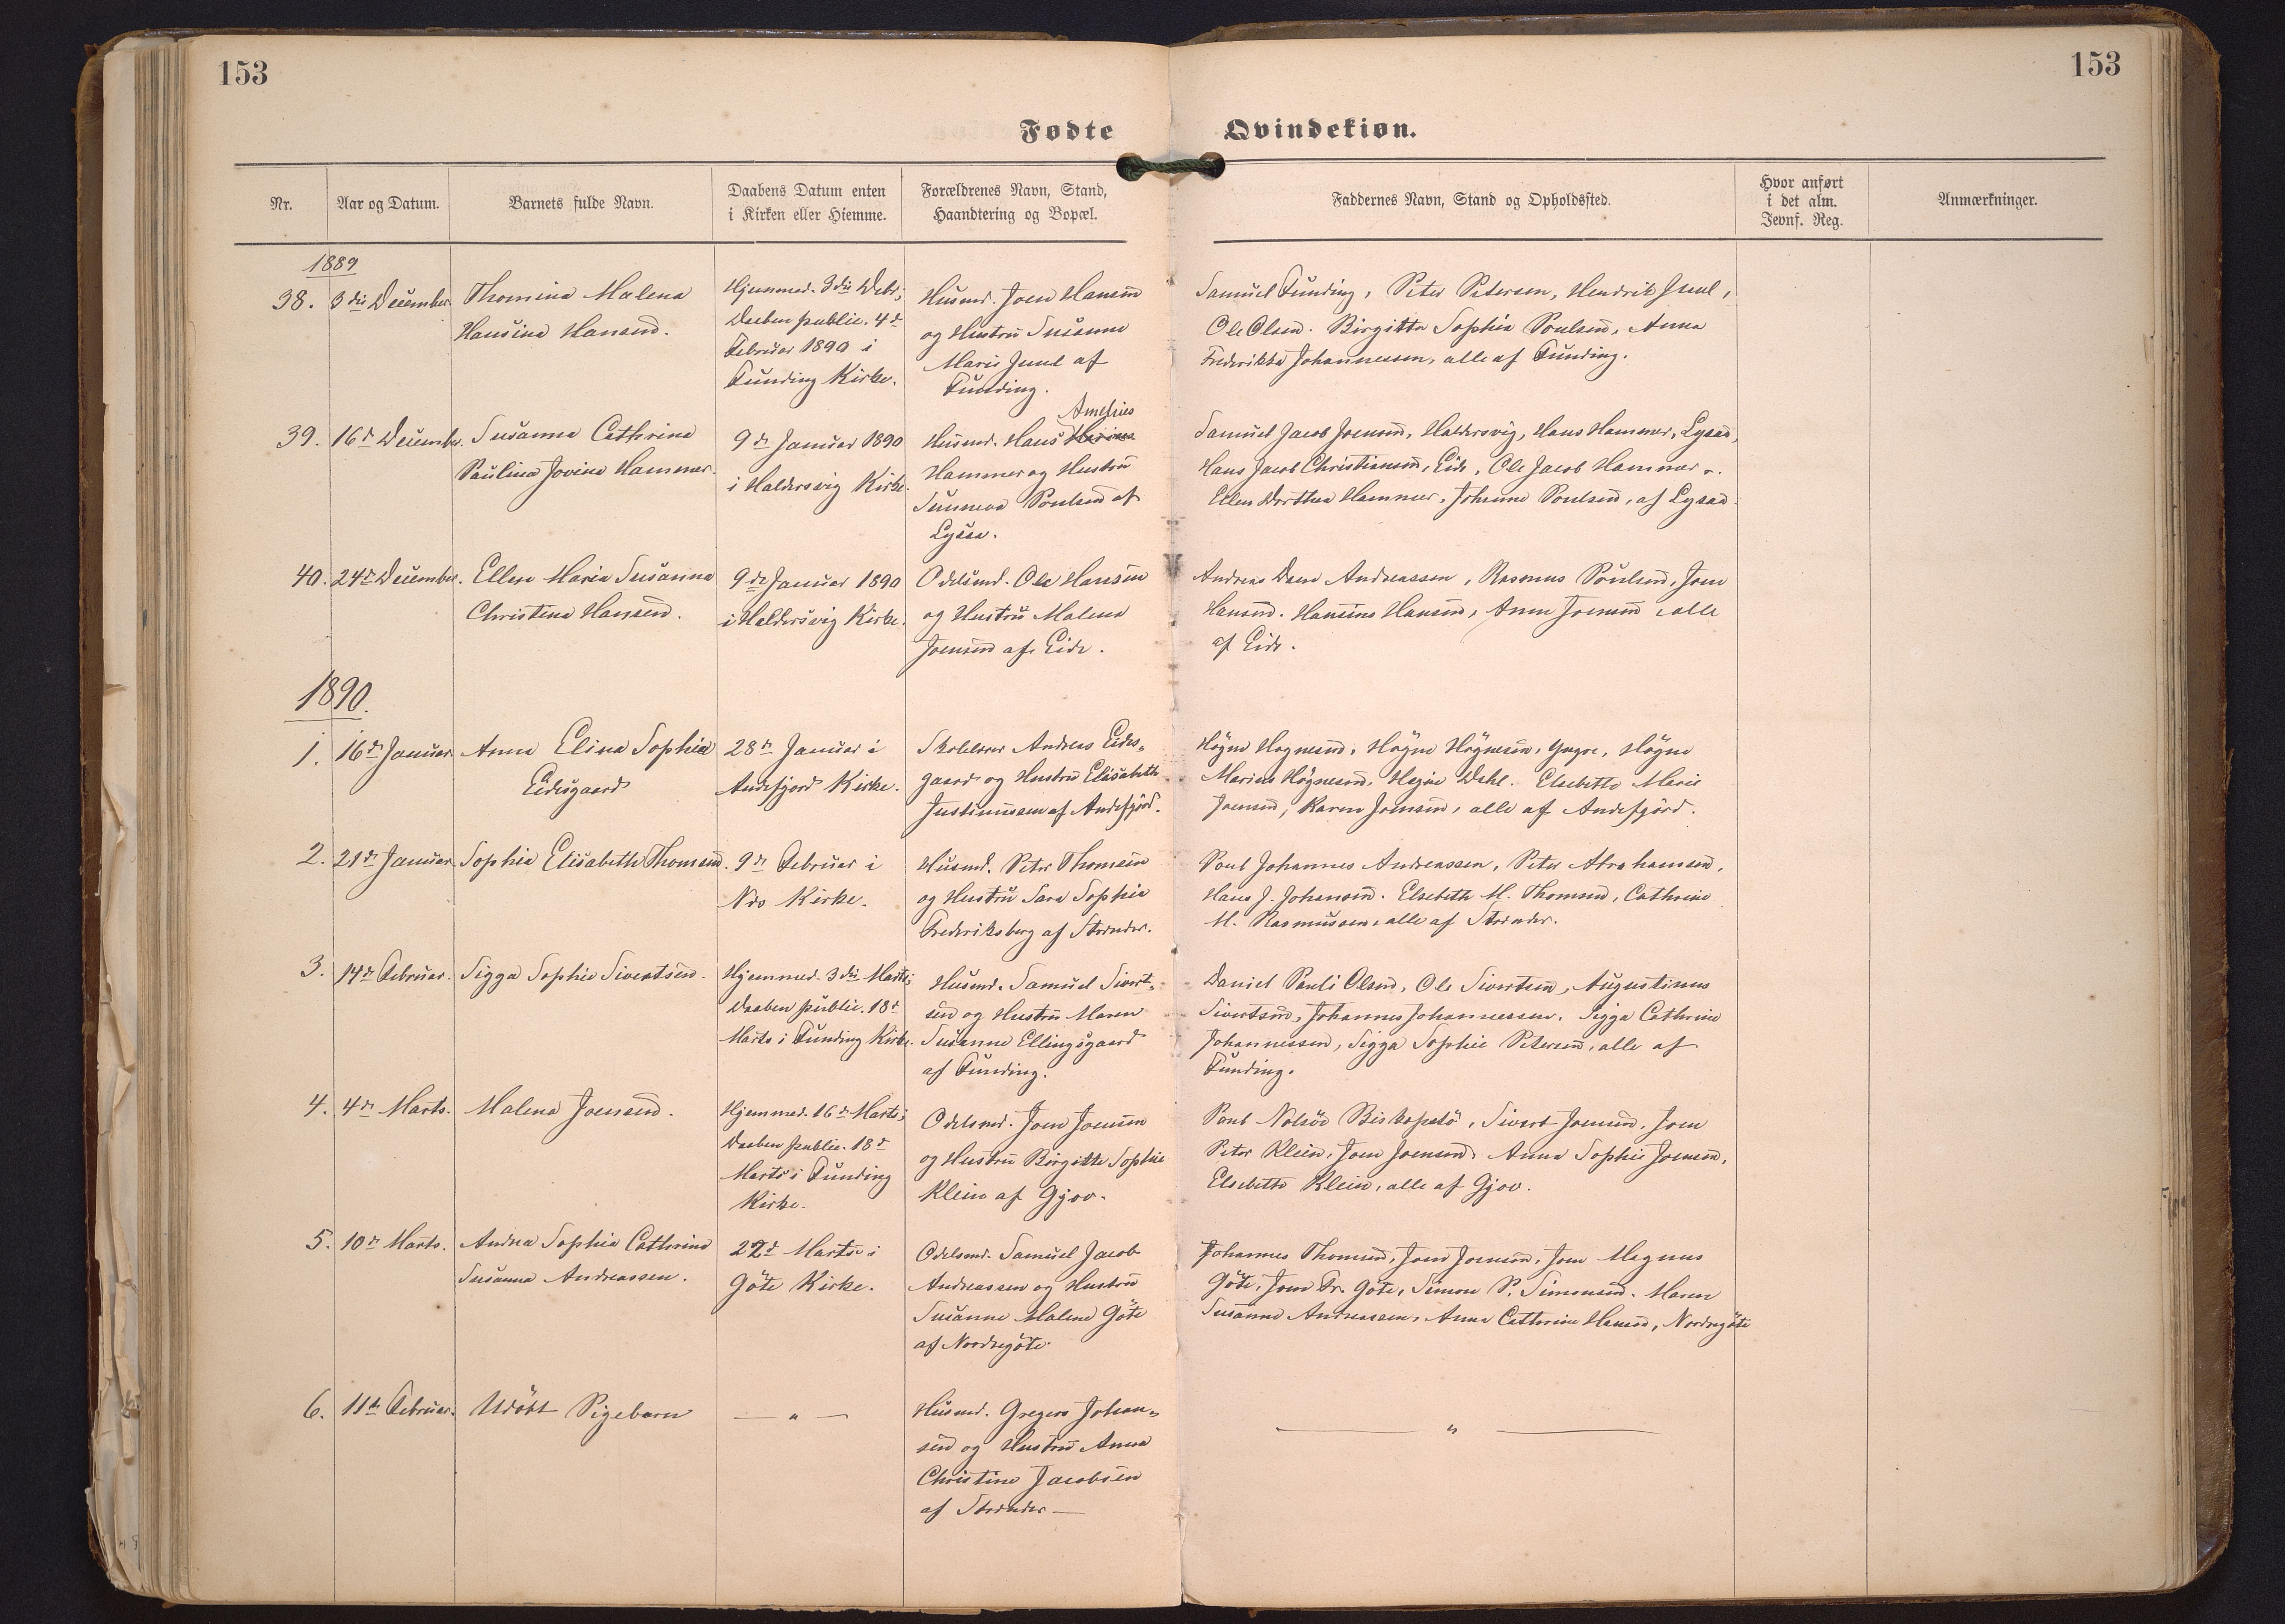 153
153
Fødte Qvindekiøn.
Nr.
Aar og Datum.
Barnets fulde Navn.
Daabens Datum enten
i Kirken eller Hiemme.
Forældrenes Navn, Stand,
Haandtering og Bopæl.
Faddernes Navn, Stand og Opholdssted.
Hvor anført
i det alm.
Jevnf. Reg.
Anmærkninger.
1889
38.
3die December.
Thomina Malena
Hansina Hansen.
Hjemmed. 3die Debr.;
Daaben public. 4de
Februar 1890 i
Funding Kirke.
Husmd. Joen Hansen
og Hustru Susanne
Marie Juul af
Funding.
Samuel Funding, Peter Petersen, Hendrik Juul,
Ole Olsen. Birgitta Sophia Poulsen, Anna
Frederikka Johannessen, alle af Funding.
39.
16de December.
Susanna Cathrina
Paulina Jovina Hammer.
9de Januar 1890
i Haldersvig Kirke.
Amelius
Husmd. Hans
Hammer og Hustru
Sunneva Poulsen af
Lysaa.
Samuel Jacob Joensen, Haldersvig, Hans Hammer, Lysaa,
Hans Jacob Christiansen, Eide, Ole Jacob Hammer
Ellen Dorthea Hammer, Johanna Poulsen, af Lysaa.
40.
24de December.
Ellen Maria Susanna
Christina Hansen.
9de Januar 1890
i Haldersvig Kirke.
Odelsmd. Ole Hansen
og Hustru Malena
Joensen af Eide.
Andreas Dam Andreassen, Rasmus Poulsen, Joen
Hansen. Hansina Hansen, Anna Joensen, alle
af Eide.
1890.
1.
16de Januar
Anna Elina Sophia
Eidesgaard
28de Januar i
Andefjord Kirke.
Skolelærer Andreas Eides-
gaard og Hustru Elisabeth
Justinussen af Andefjord.
Høgne Høgnesen, Høgne Høgnesen, yngre, Høgne
Marius Høgnesen, Høgne Dahl. Elsebetta Marie
Joensen, Karen Joensen, alle af Andefjord.
2.
21de Januar.
Sophia Elisabeth Thomsen.
9de Februar i
Næs Kirke.
Husmd. Peter Thomsen
og Hustru Sara Sophia
Frederiksberg af Strender.
Poul Johannes Andreassen, Peter Abrahamsen,
Hans J. Johansen. Elsebeth M. Thomsen, Cathrine
M. Rasmussen, alle af Strender.
3.
14de Februar.
Sigga Sophie Sivertsen.
Hjemmed. 3die Marts;
Daaben public. 18de
Marts i Funding Kirke.
Husmd. Samuel Sivert-
sen og Hustru Maren
Susanne Ellingsgaard
af Funding.
Daniel Pauli Olsen, Ole Sivertsen, Augustinus
Sivertsen, Johannes Johannessen. Sigga Cathrine
Johannessen, Sigga Sophie Petersen, alle af
Funding.
4.
4de Marts.
Malena Joensen.
Hjemmed. 16de Marts;
Daaben public. 18de
Marts i Funding
Kirke.
Odelsmd. Joen Joensen
og Hustru Birgitte Sophie
Klein af Gjov.
Poul Nolsøe Biskopstø, Sivert Joensen, Joen
Peter Klein, Joen Joensen. Anna Sophie Joensen,
Elsebetta Klein, alle af Gjov.
5.
10de Marts.
Andrea Sophia Cathrina
Susanna Andreassen.
22de Marts i
Göte Kirke.
Odelsmd. Samuel Jacob
Andreassen og Hustru
Susanne Malene Göte
af Nordregöte.
Johannes Thomsen, Joen Joensen, Joen Magnus
Göte, Joen Fr. Göte, Simon P. Simonsen. Maren
Susanna Andreassen, Anna Cathrine Hansen, Nordregöte
6.
11te Februar.
Udöbt Pigebarn
— " —
Husmd. Gregers Johan-
sen og Hustru Anna
Christine Jacobsen
af Strender —
— " —